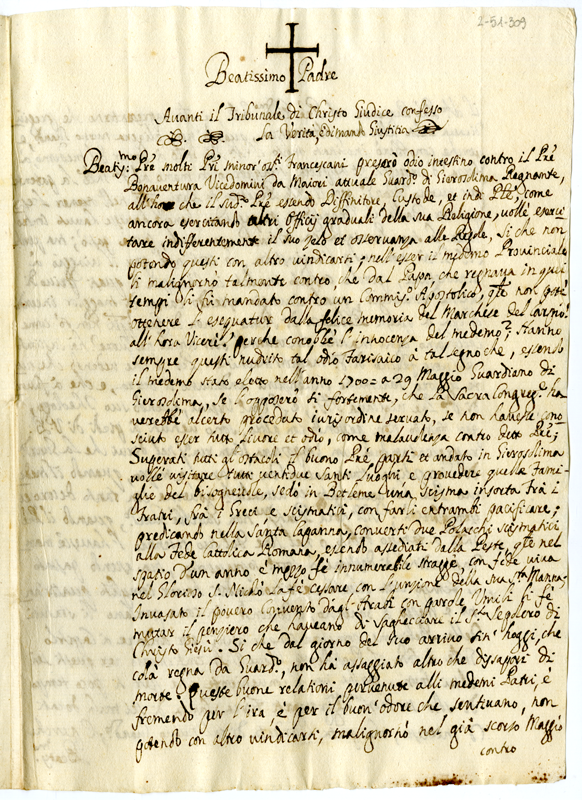 2-51-309
Beatissimo Padre
Avanti il Tribunale di Christo Giudice confesso
la Verità, e dimando Giustitia
Beatis.mo Pre molti Pri minori oss.ti Francescani presero odio intestino contro il Pre
Bonaventura Vicedomini da Maiori attuale Guard.o di Gierosolima Regnante,
all'hora che il sud.o Pre essendo Diffinitore, Custode, et indi Ple, come
ancora esercitando altri Officij graduali della sua Religione, volle eserci
tare indifferentemente il suo zelo et osservanza alle Regole, si che non
potendo questi con altro vindicarsi, nell'esser il medemo Provinciale
li malignorno talmente contro che dal Papa che regnava in quei
tempi li fù mandato contro un Commis.o Apostolico, qle non potè
ottenere l'exequatur dalla felice memoria del Marchese del Carpio
all'hora Vicerè, perche conobbe l'innocenza del medemo; Hanno
sempre questi nudrito tal odio farisaico à tal segno che, essendo
il medemo stato eletto nell'anno 1700= a 29 Maggio Guardiano di
Gierosolima, se l'opposero sì fortemente, che la Sacra Congreg.e ha
verebbe al certo proceduto iuris ordine servato, se non havesse cono
sciuto esser tutto livore et odio, come malevolenza contro detto Pre;
Superati tutti gl'ostacoli il buono Pre partì et andato in Gierosolima
volle visitare tutti ventidue Santi Luoghi e provedere quelle fami
glie del bisognevole, sedò in Betleme una scisma insorta trà i
fratri, frà i Greci e scismatici, con farli entrambi pacificare;
predicando nella Santa Capanna, convertì due Polacchi scismatici
alla fede Cattolica Romana, essendo assediati dalla Peste, qle nel
spatio d'un anno e mezzo fè innumerabile stragge, con fede viva
nel Glorioso S. Nicolò la fè cessare con l'untione della sua S.ta Manna;
Invasato il povero Convento dagl'Arabi con parole Umili li fè
mutar il pensiero che haveano di sagheggiare il S.to Sepolcro di
Christo Giesù. Si che dal giorno del suo arrivo sin hoggi, che
colà regna da Guard.o, non hà assaggiato altro che dissapori di
morte. Queste buone relationi, pervenute alli medemi Patri, è
fremendo per l'ira, è per il buon'odore che sentivano, non
potendo con altro vindicarsi, malignorno nel già scorso Maggio
contro